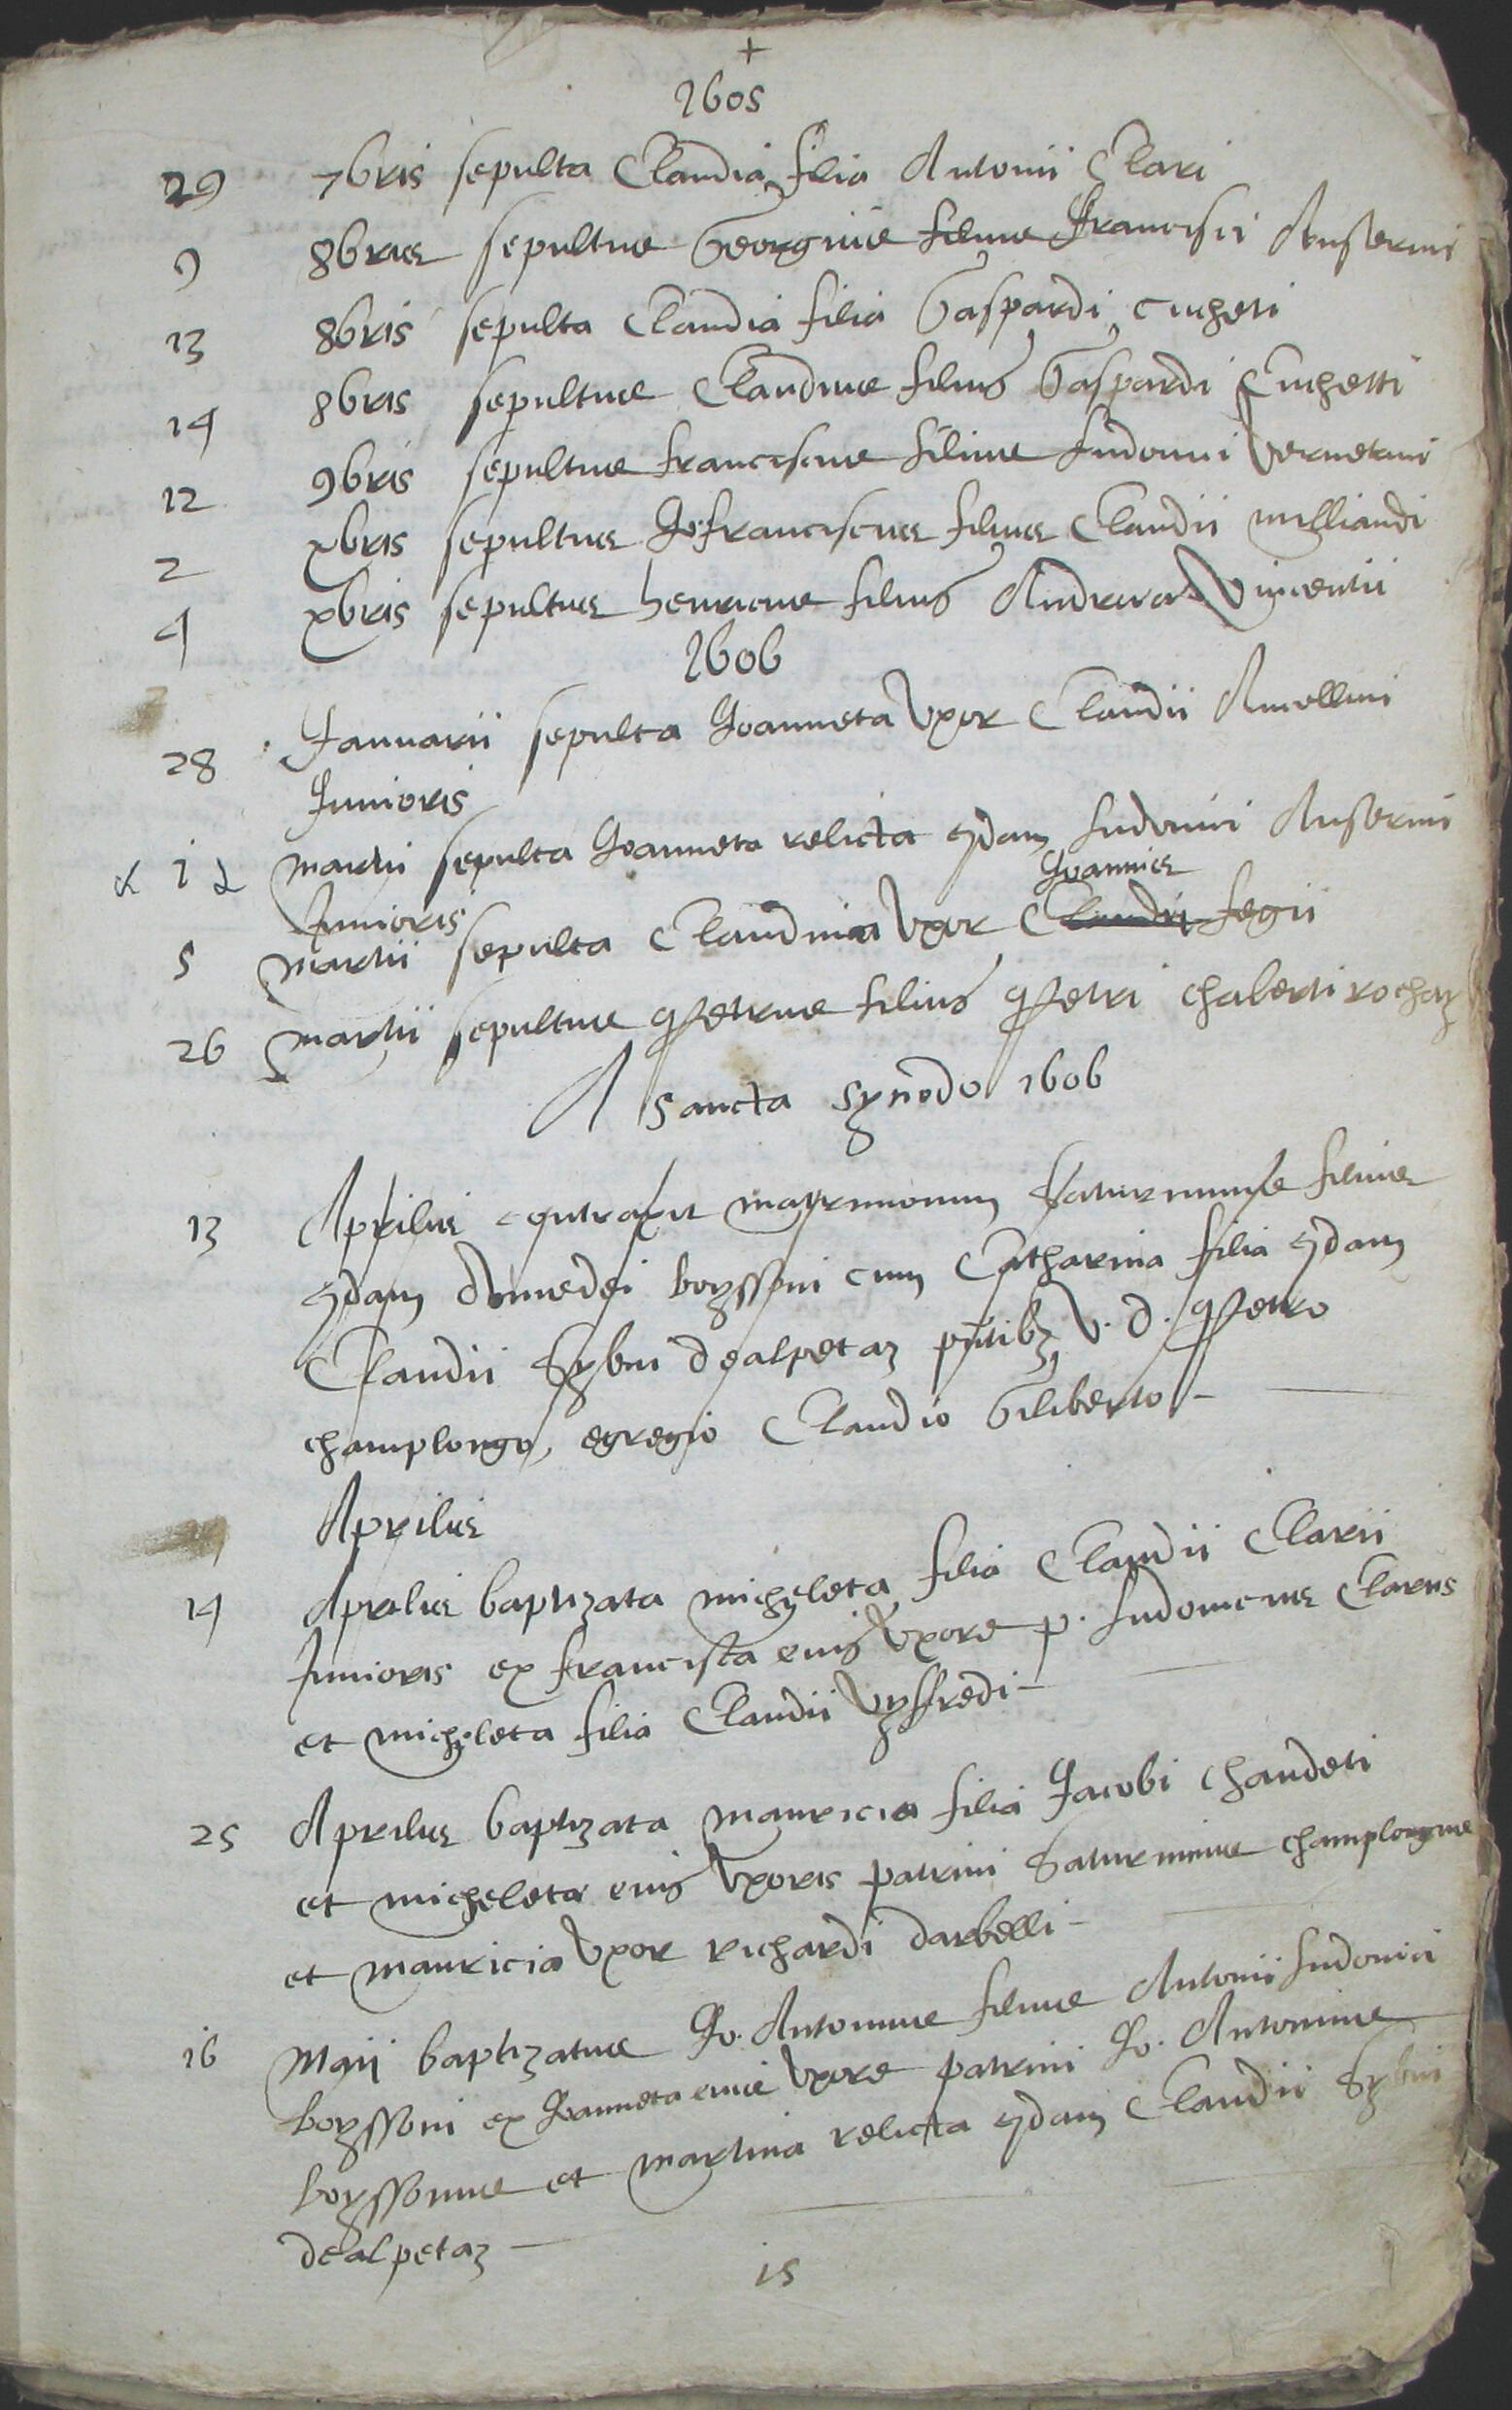 +
1605
29 7bris sepulta Claudia filia Antonii Clari
9 8bris sepultus Georgius filius Francisci Anserini
13 8bris sepulta Claudia filia Gaspardi Cucheti
14 8bris sepultus Claudius filius Gaspardi Cuchetti
12 9bris sepultus franciscus filius Ludovici
2 xbris sepultus Jo. franciscus filius Claudii milliandi
4 xbris sepultus henricus filius Andreae Vincentii
1606
28 Januarii sepulta Joanneta Uxor Claudii
Junioris
1 martii sepulta Joanneta relicta qdam Ludovici Anserini
Junioris
Joannis
5 martii sepulta Claudina Uxor Claudii Fegii
26 martii sepultus Petrus filius Petri chaberti rochaz
A sancta synodo 1606
13 Aprilis contraxit matrimonium Saturninus filius
qdam Amedei boyssoni cum Catharina filia qdam
Claudii Sybui dealpetaz pntibz V. d. Petro
champlongo, egregio Claudio Giliberto -
Aprilis
14 Aprilis baptizata micheleta filia Claudii Clarii
Junioris ex francisca eius Uxore p. Ludovicus Clarus
et micheleta filia Claudii Uyffredi -
25 Aprilis baptizata mauricia filia Jacobi chaudeti
et micheleta eius Uxoris patrini Saturninus champlongus
et mauricia Uxor richardi darbelli -
16 Maii baptizatus Jo. Antonius filius Antonii Ludovici
boyssoni ex Joanneta eius Uxore patrini Jo. Antonius
boyssonus et martina relicta qdam Claudii Sybui
dealpetaz -
15